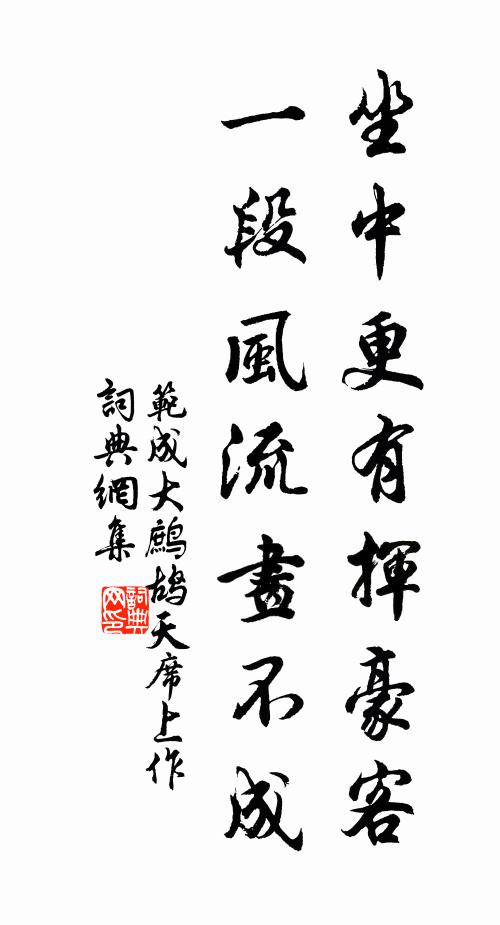 坐中更有揮豪客
一段風流畫不成
範成大鷓鴣天席上作
詞典網集
詞典网印